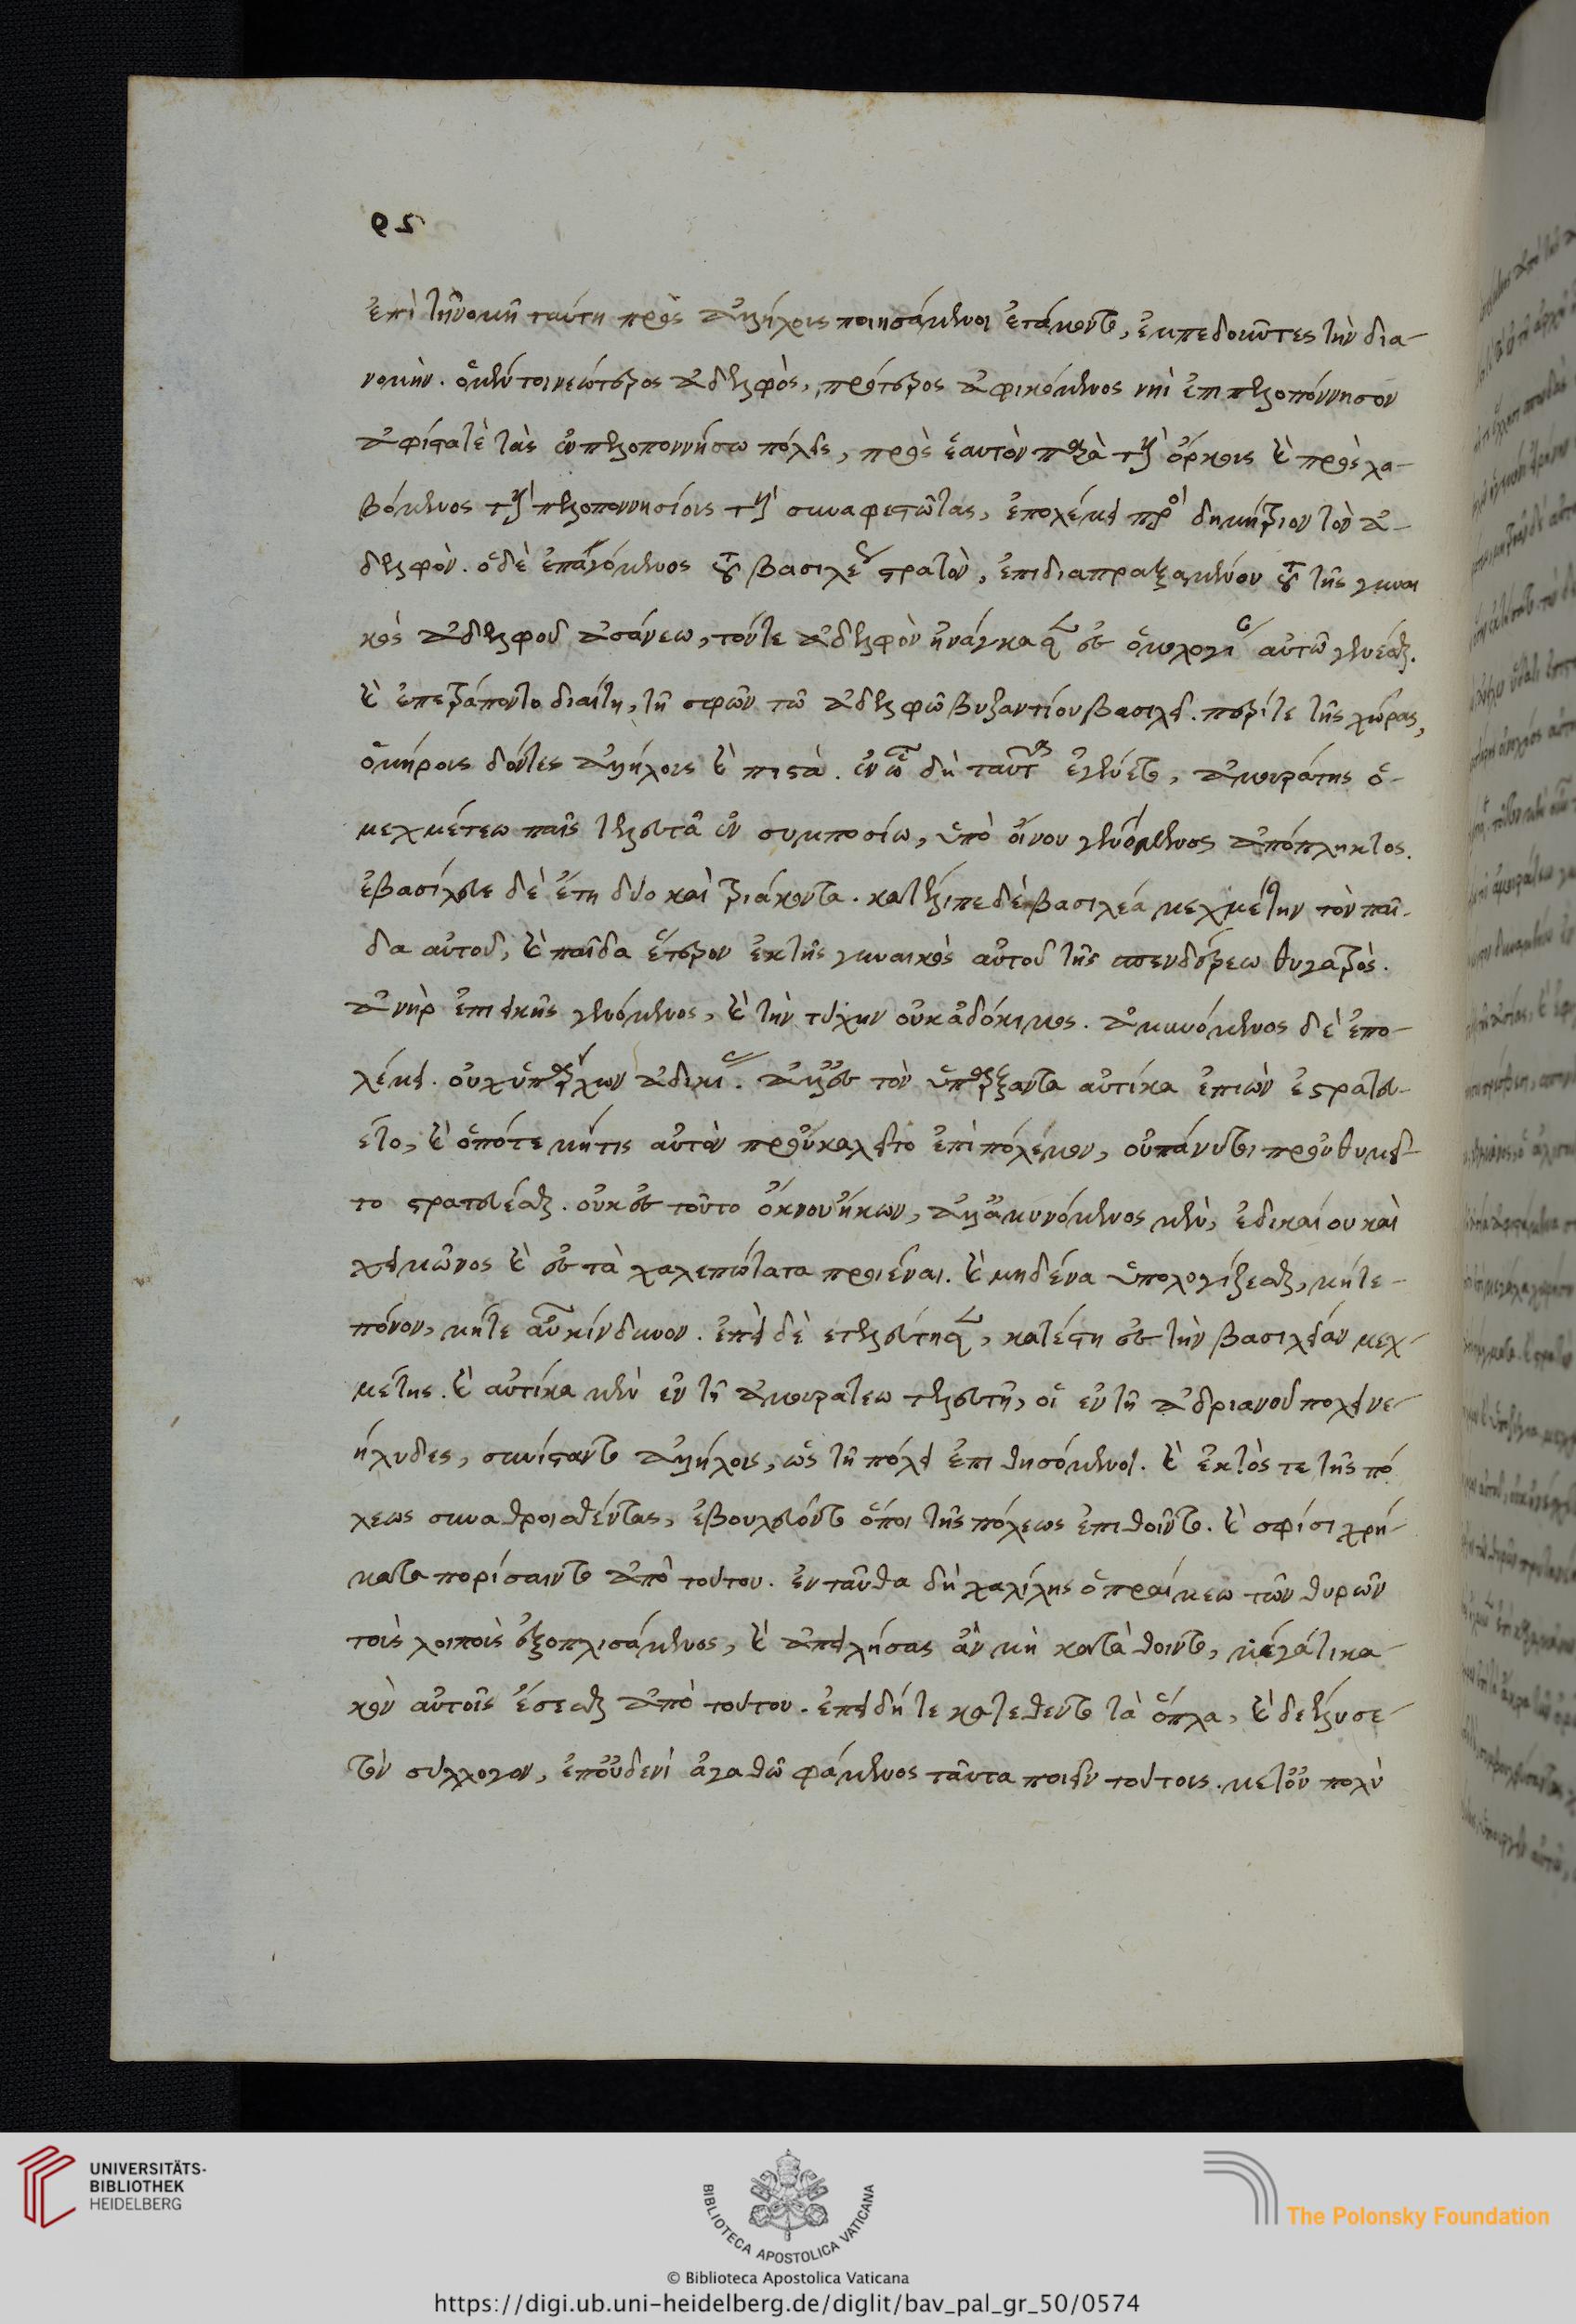 29
ἐπὶ τῇ νομῇ ταύτῃ πρὸς ἀλλήλους ποιησάμενοι ἐτάμοντο, ἐμπεδοῦντες τὴν δια-
νομήν. ὁ μέντοι νεώτερος ἀδελφὸς, πρότερος ἀφικόμενος νηὶ ἐπὶ πελοπόννησον
ἀφίστα τὲ τὰς ἐν πελοποννήσω πόλεις, πρὸς ἑαυτὸν παρὰ τοὺς ὅρκους καὶ προσλα-
βόμενος τοὺς πελοποννησίους τοὺς συναφεστῶτας, ἐπολέμει πρὸς δημήτριον τὸν ἀ-
δελφὸν. ὁ δὲ ἐπαγόμενος τοῦ βασιλέως στρατὸν, ἐπιδιαπραξαμένου τοῦ τῆς γυναι
κὸς ἀδελφοῦ ἀσάνεω, τόν τε ἀδελφὸν ἠνάγκασεν ἐς ὁμολογίαν αὐτῶ γενέσθαι.
καὶ ἐπετράποντο διαίτη, τῆ σφῶν τῶ ἀδελφῶ βυζαντίου βασιλεῖ. περί τε τῆς χώρας,
ὁμήρους δόντες ἀλλήλοις καὶ πιστὰ. ἐν ὧ δὴ ταῦτα ἐγένετο, ἀμουράτης ὁ-
μεχμέτεω παῖς τελευτᾶ ἐν συμποσίω, ὑπὸ οἴνου γενόμενος ἀπόπληκτος.
ἐβασίλευε δὲ ἔτη δύο καὶ τριάκοντα. κατέλιπε δὲ βασιλέα μεχμέτην τὸν παῖ-
δα αὐτοῦ, καὶ παῖδα ἕτερον ἐκ τῆς γυναικὸς αὐτοῦ τῆς σπενδέρεω θυγατρὸς.
ἀνὴρ ἐπιεικὴς γενόμενος, καὶ τὴν τύχην οὐκ ἀδόκιμος. ἀμυνόμενος δὲ ἐπο-
λέμει. οὐχ ὑπάρχων ἀδικίας. ἀλλ' ἐς τὸν ὑπάρξαντα αὐτίκα ἐπιὼν ἐστρατεύ-
ετο, καὶ ὁπότε μή τις αὐτὸν προὐκαλεῖτο ἐπὶ πόλεμον, οὐ πάνυ τι προὐθυμεῖ-
το στρατεύεσθαι. οὐκ ἐς τοῦτο ὄκνου ἥκων, ἀλλ' ἀμυνόμενος μὲν, ἐδικαίου καὶ
χειμῶνος καὶ ἐς τὰ χαλεπώτατα προιέναι. καὶ μηδένα ὑπολογίζεσθαι, μήτε-
πόνον, μήτε αὖ κίνδυνον. ἐπεὶ δὲ ἐτελεύτησεν, κατέστη ἐς τὴν βασιλείαν μεχ-
μέτης. καὶ αὐτίκα μὲν ἐν τῆ ἀμουράτεω τελευτῆ, οἱ ἐν τῆ ἀδριανουπόλει νε-
ήλυδες, συνίσταντο ἀλλήλοις, ὡς τῆ πόλει ἐπιθησόμενοι. καὶ ἐκτός τε τῆς πό
λεως συναθροισθέντας, ἐβουλεύοντο ὅποι τῆς πόλεως ἐπιθοῖντο. καὶ σφίσι χρή-
ματα πορίσαιντο ἀπὸ τούτου. ἐνταῦθα δὴ χαλίλης ὁ πραίμεω τῶν θυρῶν
τοῖς λοιποῖς ἐξοπλισάμενος, καὶ ἀπειλήσας ἂν μὴ κατάθοιντο, μέγα τι κα-
κὸν αὐτοῖς ἔσεσθαι ἀπὸ τούτου. ἐπειδή τε κατέθεντο τὰ ὅπλα, καὶ διέλυσε-
τὸν σύλλογον, ἐπ' οὐδενὶ ἀγαθῶ φάμενος ταῦτα ποιεῖν τούτοις. μετ' οὐ πολὺ
UNIVERSITÄTS-
BIBLIOTHEK
HEIDELBERG
BIBLIOTECA APOSTOLICA VATICANA
The Polonsky Foundation
© Biblioteca Apostolica Vaticana
https://digi.ub.uni-heidelberg.de/diglit/bav_pal_gr_50/0574